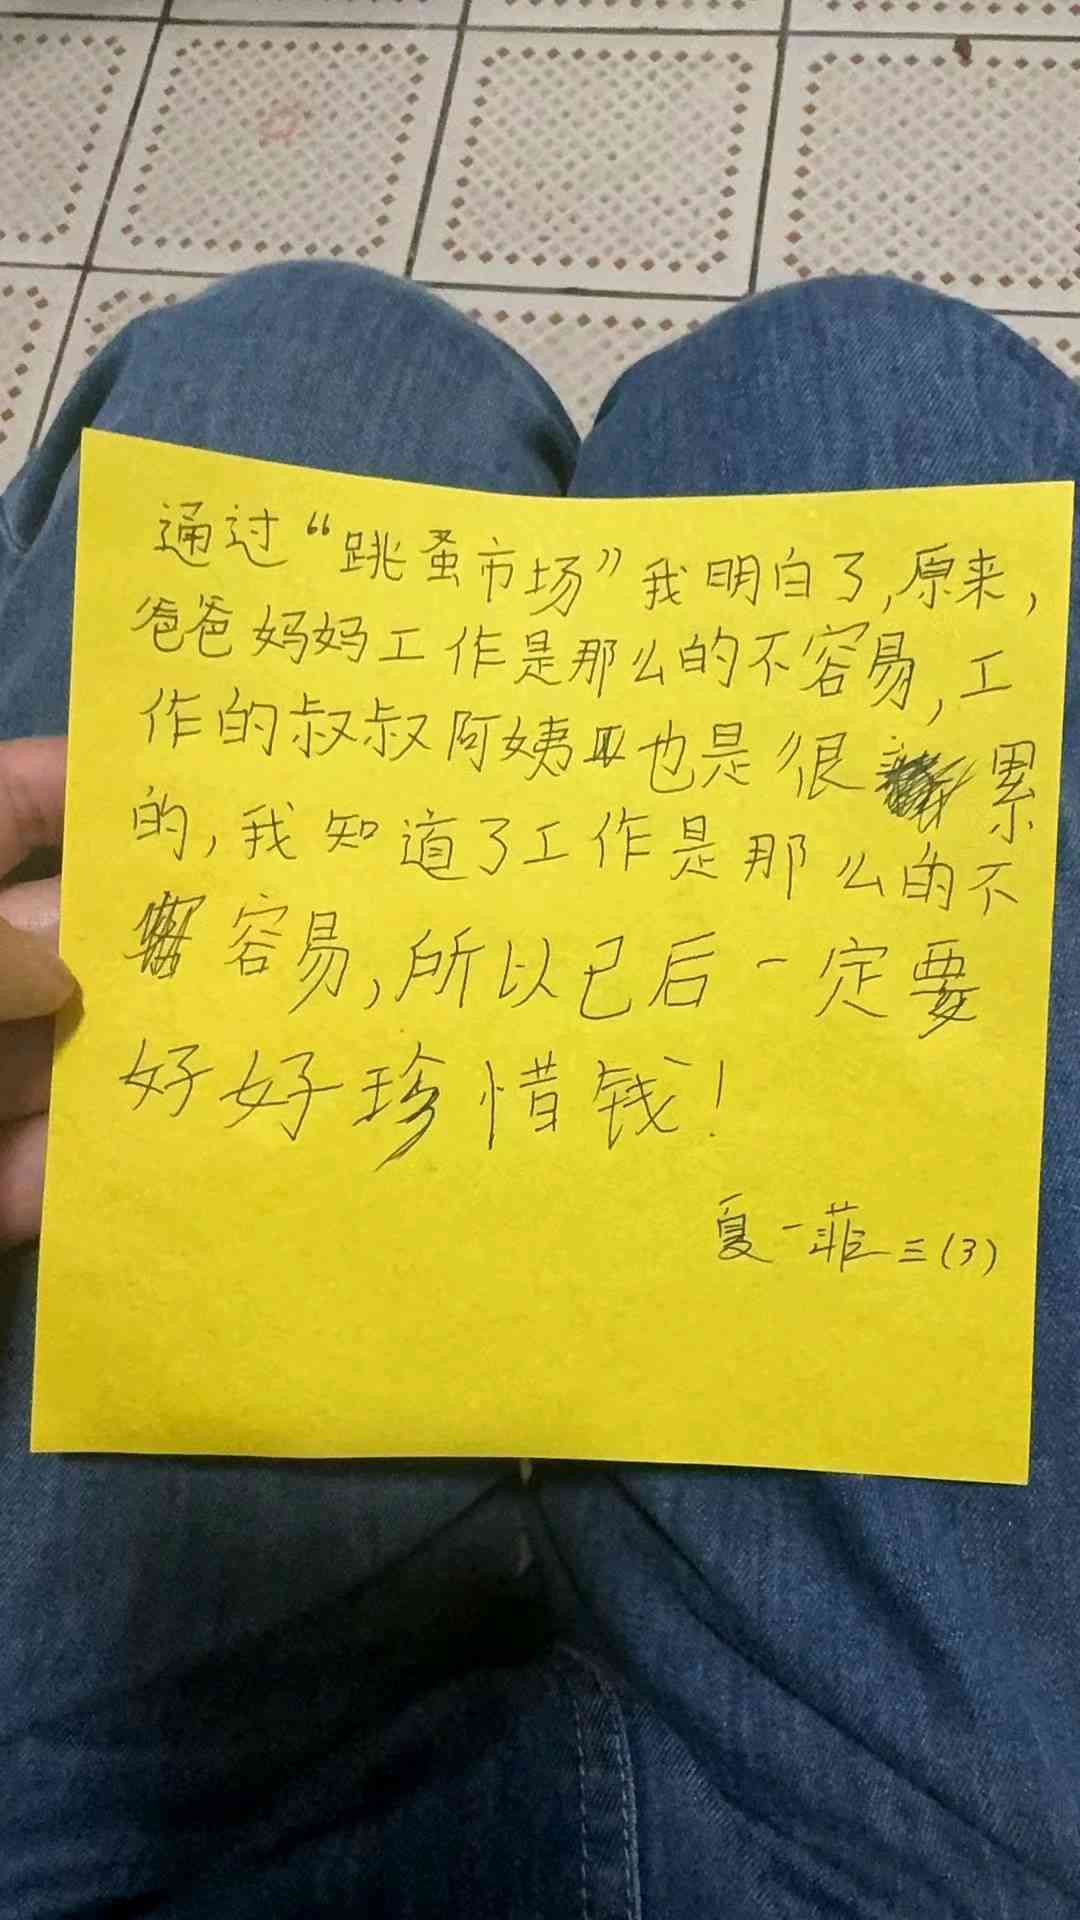 通过“跳蚤市场”我明白了,原来,
爸爸妈妈工作是那么的不容易,工
作的叔叔阿姨也是很累
的,我知道了工作是那么的不
容易,所以已后一定要
好好珍惜钱!
夏一菲三(3)